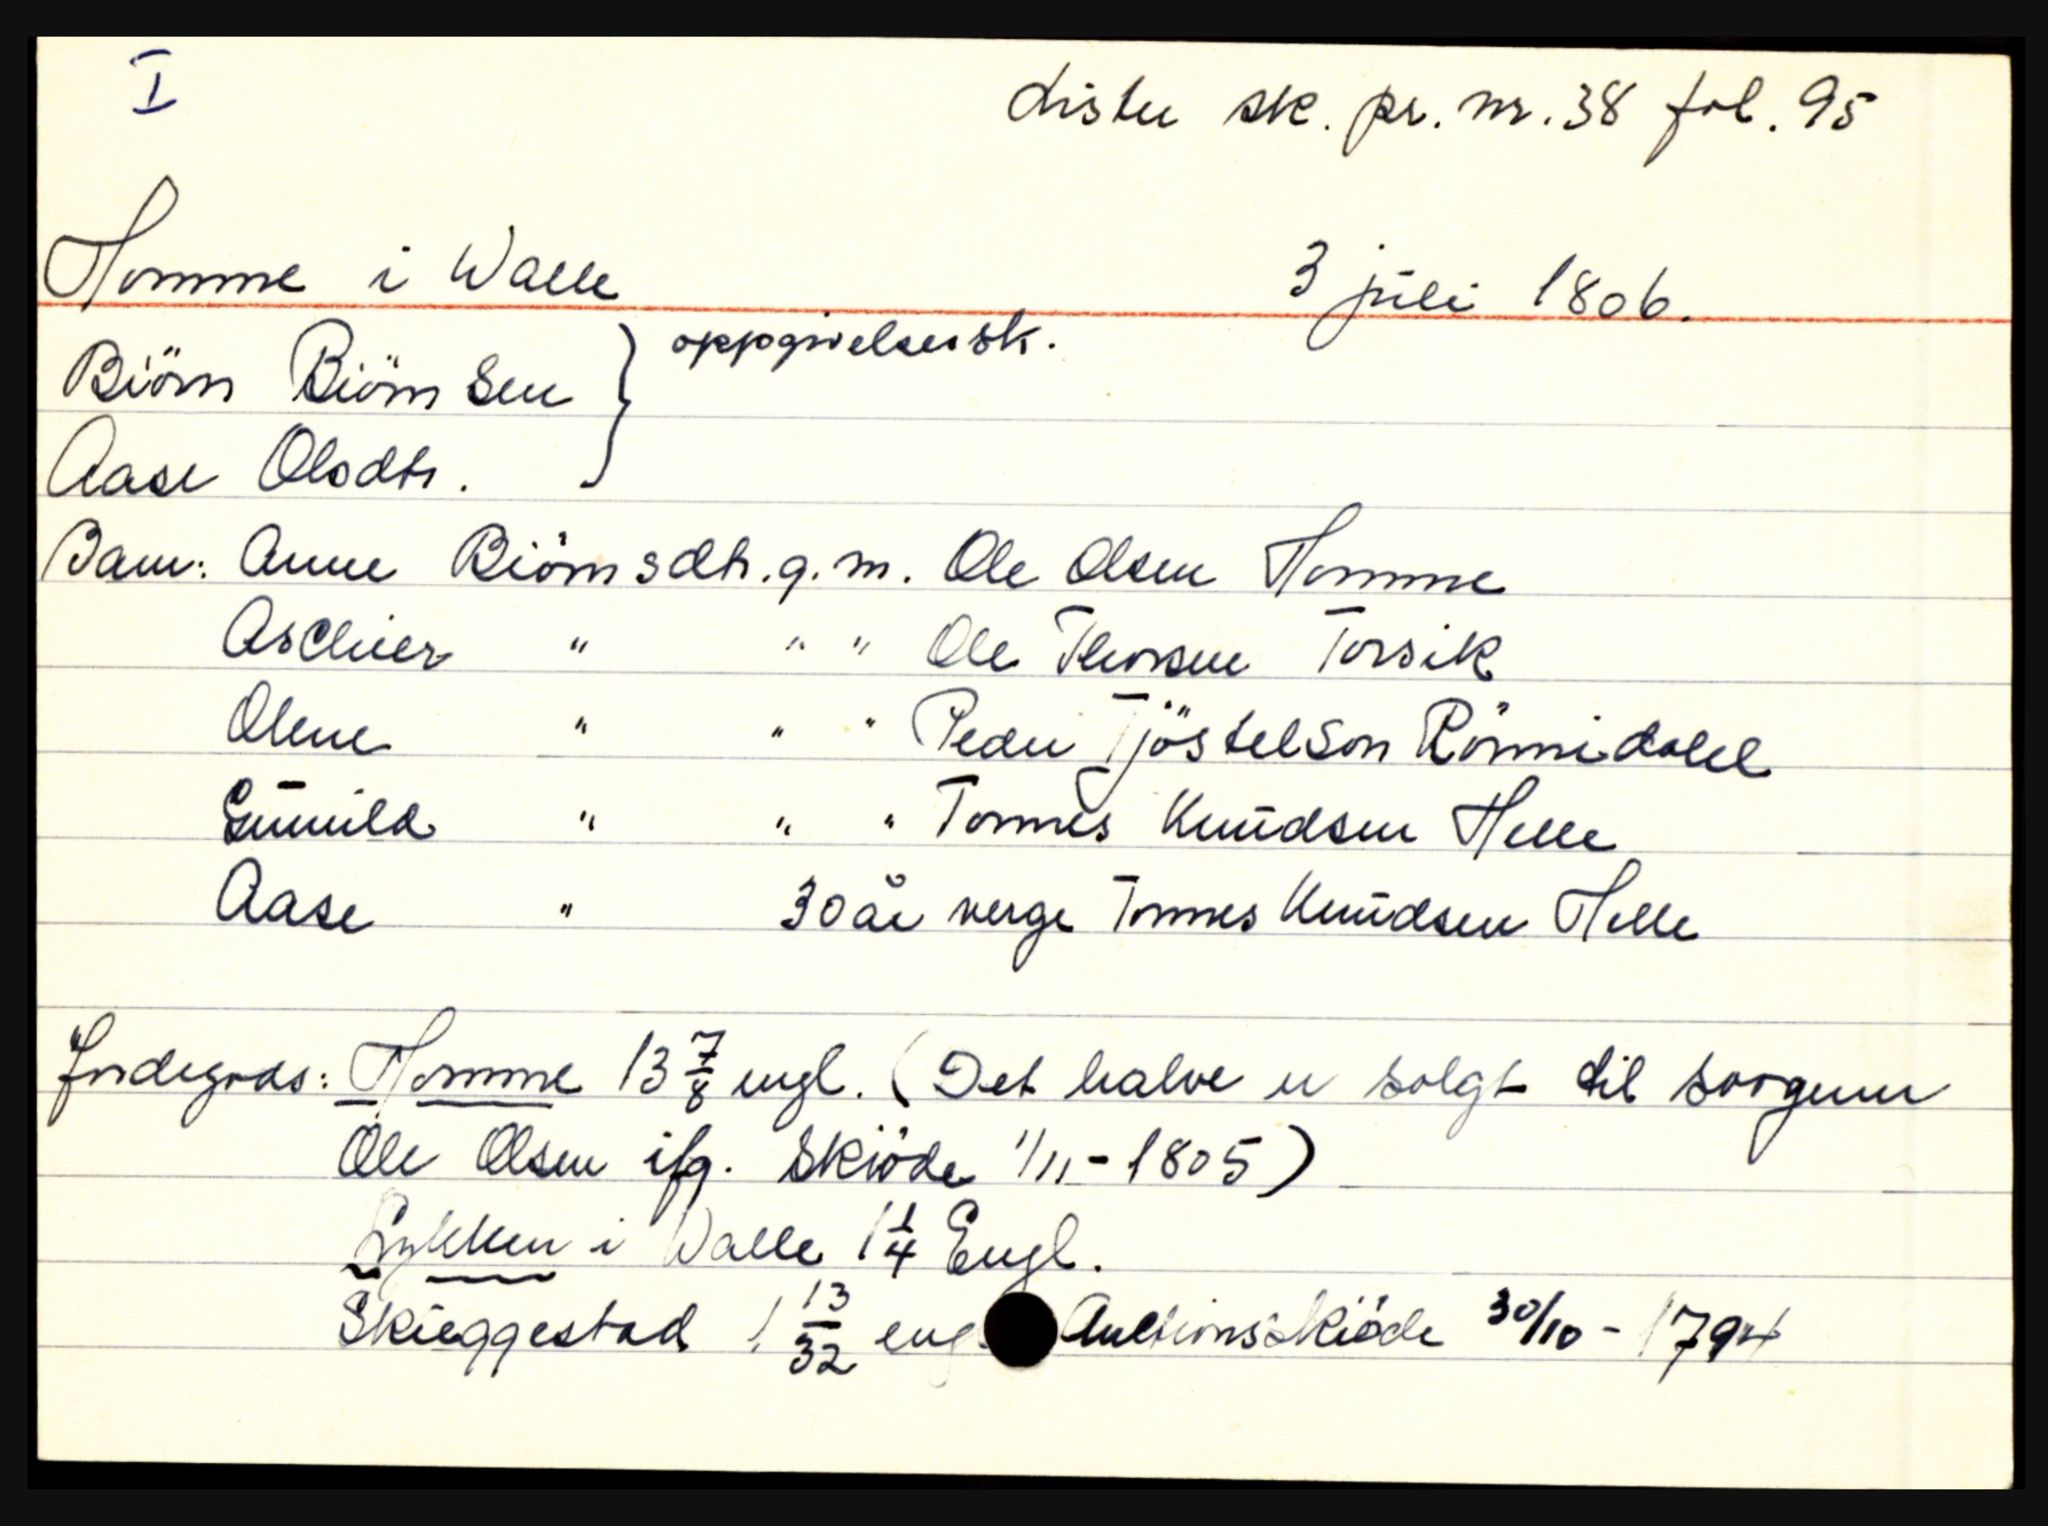 I
Lister sk. pr. nr. 38 fol. 95
Homme i Walle 3 juli 1806.
Biörn Biörnsen } oppgivelsessk.
Aase Olsdtr.
Barn: Anne Biörnsdtr. g. m. Ole Olsen Homme
Aschier " " " Ole Thorsen Torsik
Olene " " " Peder Tjöstelson Rönnidalel
Gunnild " " " Tønnes Knudsen Helle
Aase " 30 år verge Tønnes Knudsen Helle
Jordegods: Homme 13 7/8 engl. (Det halve er solgt til svogeren
Ole Olsen ifg. Skiöde 1/11-1805)
Lykken i Walle 1 1/4 Engl.
Skieggestad 1 13/32 eng Auktionsskiöde 30/10-1794